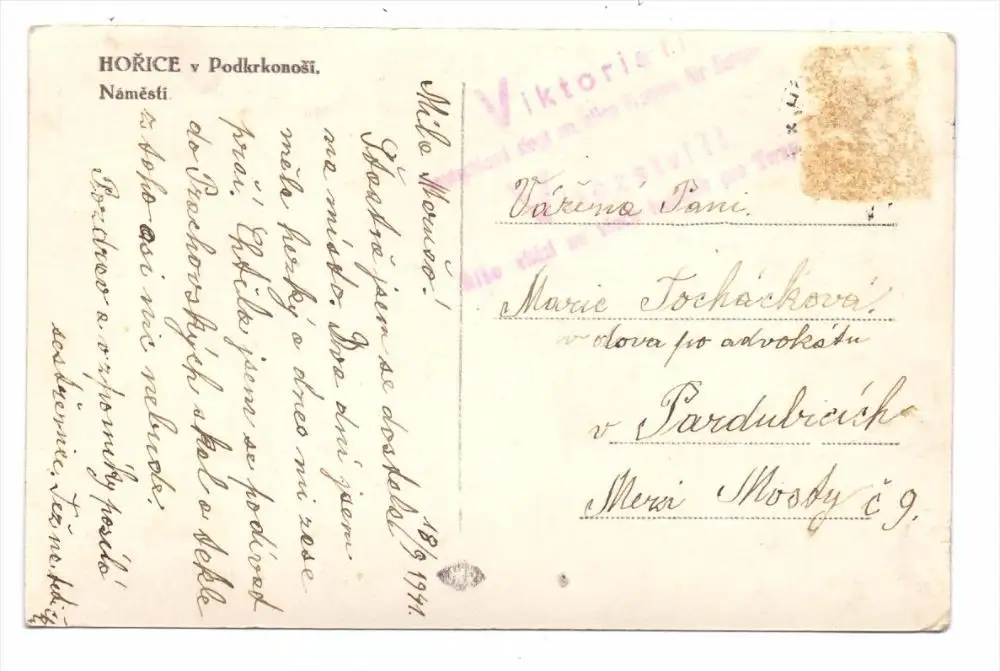 HOŘICE v Podkrkonoší.
Náměstí.
Milá Maruško!
Šťastně jsem se dostala
na místo. Dva dni jsem
měla hezký a dnes mi zase
prší. Chtěla jsem se podívat
do Prachovských skal a tekle
z toho asi nic nebude.
Pozdrav a vzpomínky posílá
sestřenice
18/9 1941.
Viktoria
Vážená Paní.
Marie Tocháčková.
vdova po advokátu
v Pardubicích
Mezi Mosty č 9.